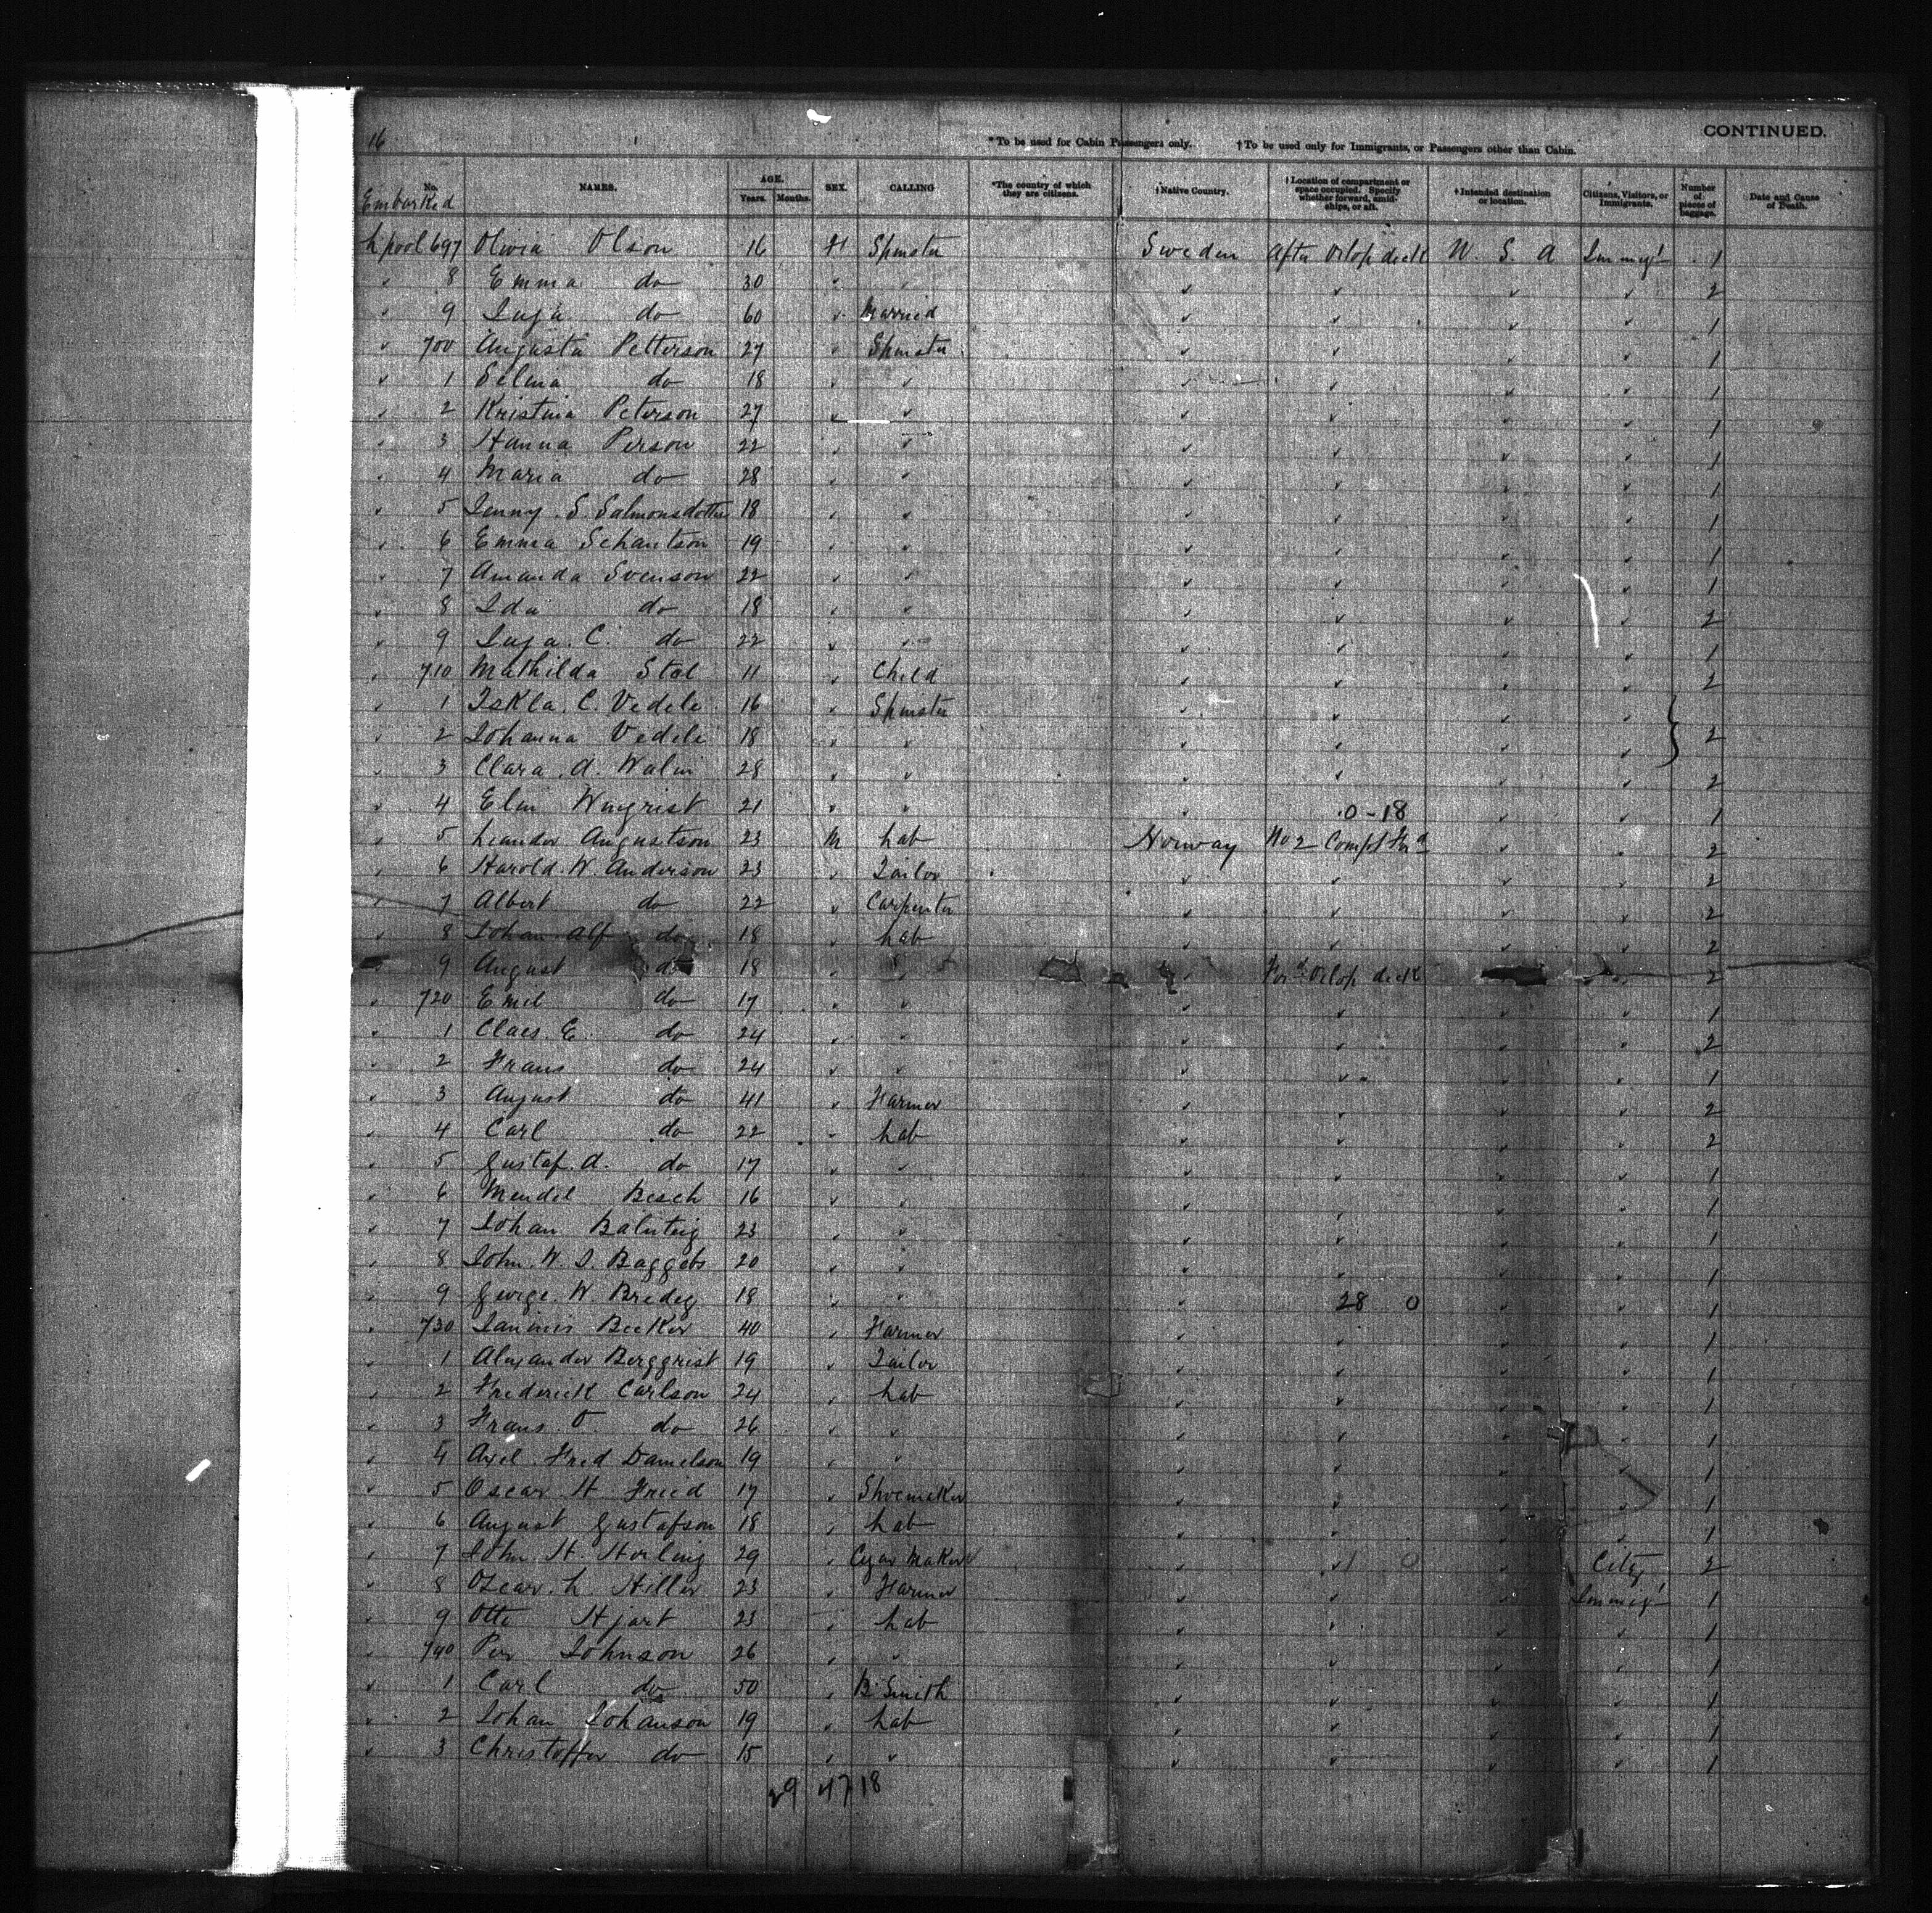 16 *To be used for Cabin Passengers only. †To be used only for Immigrants, or Passengers other than Cabin. CONTINUED.
No. Embarked NAMES. AGE. Years. Months. SEX. CALLING *The country of which they are citizens. †Native Country. †Location of compartment or space occupied. Specify whether forward, amidships, or aft. †Intended destination or location. Citizens, Visitors, or Immigrants. Number of pieces of baggage. Date and Cause of Death.
L'pool 697 Olivia Olson 16 F Spinster Sweden After Orlop deck U. S. A Immig't 1
" 8 Emma do 30 " " " " " 2
" 9 Inga do 60 " Married " " " " 1
" 700 Augusta Petterson 27 " Spinster " " " " 1
" 1 Selma do 18 " " " " " " 1
" 2 Kristina Peterson 27 " " " " " " 1
" 3 Hanna Person 22 " " " " " " 1
" 4 Maria do 28 " " " " " " 1
" 5 Jenny S. Salmonsdotter 18 " " " " " " 1
" 6 Emma Schantson 19 " " " " " " 1
" 7 Amanda Svenson 22 " " " " " " 1
" 8 Ida do 18 " " " " " " 2
" 9 Inga C. do 22 " " " " " " 1
" 710 Mathilda Stal 11 " Child " " " " 2
" 1 Tekla C. Vedele 16 " Spinster " " " "
" 2 Johanna Vedele 18 " " " " " " 2
" 3 Clara A. Walin 28 " " " " " " 2
" 4 Elin Wingrist 21 " " " 0-18 " " 1
" 5 Leander Augustson 23 M Lab Norway No 2 Compt For'd " " 2
" 6 Harold W. Anderson 23 " Tailor " " " " 2
" 7 Albert do 22 " Carpenter " " " " 2
" 8 Johan Alf do 18 " Lab " " " " 2
" 9 August do 18 " " " For'd Orlop deck " 2
" 720 Emil do 17 " " " " " " 1
" 1 Claes E. do 24 " " " " " " 2
" 2 Frans do 24 " " " " " " 1
" 3 August do 41 " Farmer " " " " 2
" 4 Carl do 22 " Lab " " " " 2
" 5 Gustaf A. do 17 " " " " " " 1
" 6 Mendel Besch 16 " " " " " " 1
" 7 Johan 23 " " " " " " 1
" 8 John W. 20 " " " " " " 1
" 9 George W. 18 " " " 28 0 " " 1
" 730 Becker 40 " Farmer " " " " 1
" 1 Alexander Berggrist 19 " Tailor " " " " 1
" 2 Frederick Carlson 24 " Lab " " " " 1
" 3 Frans O. do 26 " " " " " " 1
" 4 Axel Fred Danielson 19 " " " " " " 1
" 5 Oscar H. Fried 17 " Shoemaker " " " " 1
" 6 August Gustafson 18 " Lab " " " " 1
" 7 John H. Horling 29 " Cigar Maker " " 0 " City 2
" 8 Oscar L. Hiller 23 " Farmer " " " Immig't 1
" 9 Otto Hjart 23 " Lab " " " " 1
" 740 Per Johnson 26 " " " " " " 1
" 1 Carl do 50 " B. Smith " " " " 1
" 2 Johan Johanson 19 " Lab " " " " 1
" 3 Christoffer do 15 " " " " " " 1
29 47 18